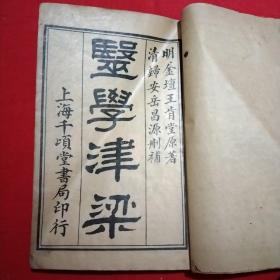 明金壇王肯堂原著
清歸安岳昌源刪補
醫學津梁
上海千頃堂書局印行